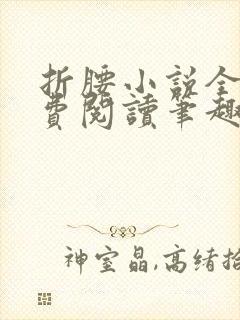 折腰小说全
費閱讀筆趣
神室晶,高绪拾